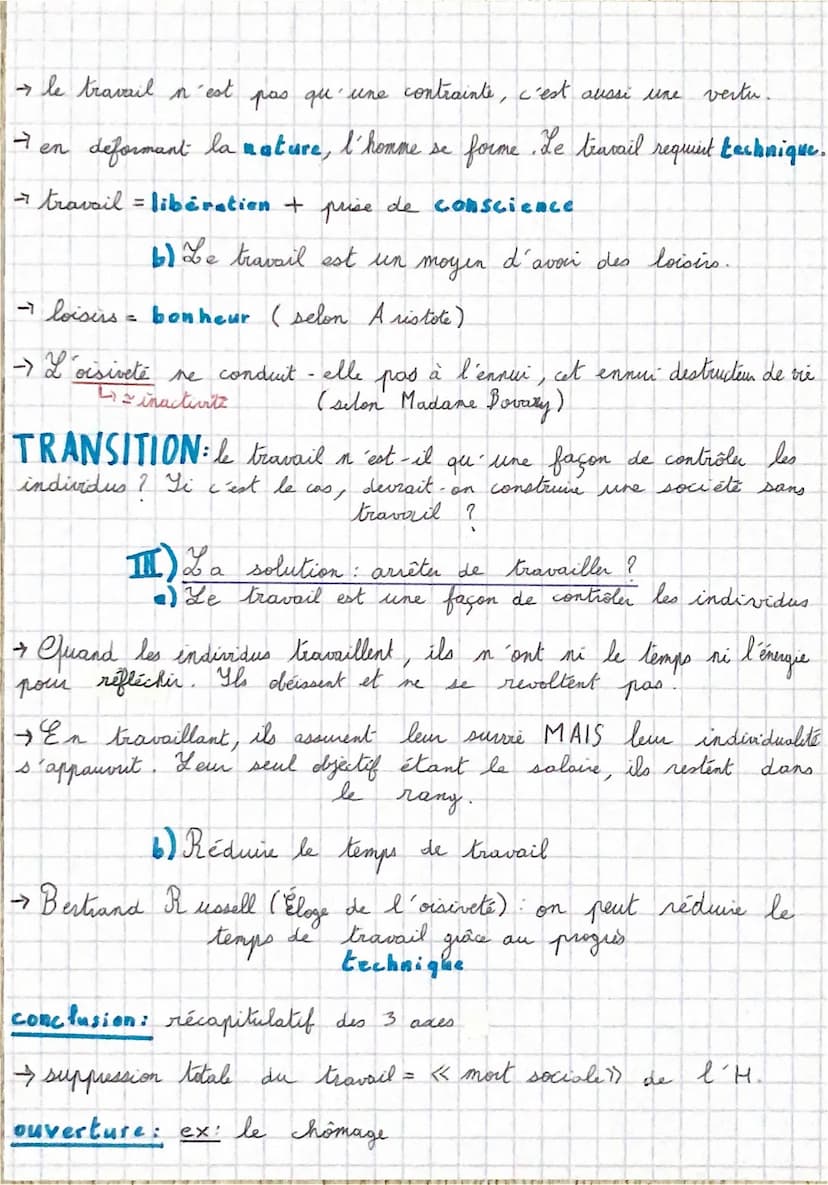 → le travail n'est pas qu'une contrainte, c'est aussi une vertu.
→ en déformant la nature, l'homme se forme. Le travail requiert technique.
→ travail = libération + prise de conscience
b) Le travail est un moyen d'avoir des loisirs.
→ loisirs = bonheur (selon Aristote)
→ L'oisiveté ne conduit-elle pas à l'ennui, cet ennui destructeur de vie
↳ = inactivité (selon Madame Bovary)
TRANSITION: le travail n'est-il qu'une façon de contrôler les
individus ? Si c'est le cas, devrait-on construire une société sans
travail ?
III) La solution : arrêter de travailler ?
a) Le travail est une façon de contrôler les individus
→ Quand les individus travaillent, ils n'ont ni le temps ni l'énergie
pour réfléchir. Ils obéissent et ne se revoltent pas.
→ En travaillant, ils assurent leur survie MAIS leur individualité
s'appauvrit. Leur seul objectif étant le salaire, ils restent dans
le rang.
b) Réduire le temps de travail
→ Bertrand Russell (Éloge de l'oisiveté) : on peut réduire le
temps de travail grâce au progrès
technique
conclusion: récapitulatif des 3 axes
→ suppression totale du travail = « mort sociale » de l'H.
ouverture: ex: le chômage